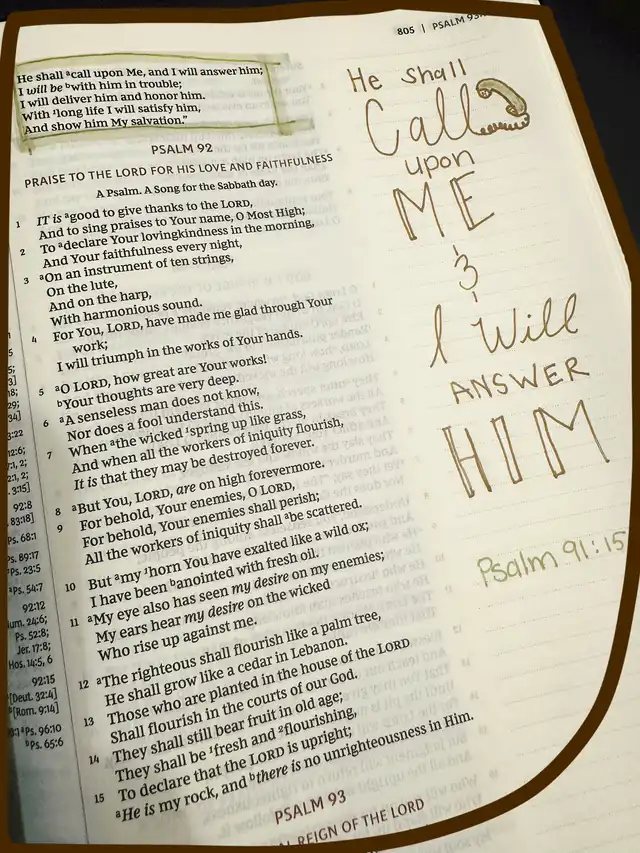 805 | PSALM 93
He shall ᵃcall upon Me, and I will answer him;
I will be ᵇwith him in trouble;
I will deliver him and honor him.
With ¹long life I will satisfy him,
And show him My salvation.”
PSALM 92
PRAISE TO THE LORD FOR HIS LOVE AND FAITHFULNESS
A Psalm. A Song for the Sabbath day.
1 IT is ᵃgood to give thanks to the LORD,
And to sing praises to Your name, O Most High;
2 To ᵃdeclare Your lovingkindness in the morning,
And Your faithfulness every night,
3 ᵃOn an instrument of ten strings,
On the lute,
And on the harp,
With harmonious sound.
4 For You, LORD, have made me glad through Your
work;
I will triumph in the works of Your hands.
5 ᵃO LORD, how great are Your works!
ᵇYour thoughts are very deep.
6 ᵃA senseless man does not know,
Nor does a fool understand this.
7 When ᵃthe wicked ¹spring up like grass,
And when all the workers of iniquity flourish,
It is that they may be destroyed forever.
8 ᵃBut You, LORD, are on high forevermore.
9 For behold, Your enemies, O LORD,
For behold, Your enemies shall perish;
All the workers of iniquity shall ᵃbe scattered.
10 But ᵃmy ¹horn You have exalted like a wild ox;
I have been ᵇanointed with fresh oil.
11 ᵃMy eye also has seen my desire on my enemies;
My ears hear my desire on the wicked
Who rise up against me.
12 ᵃThe righteous shall flourish like a palm tree,
He shall grow like a cedar in Lebanon.
13 Those who are planted in the house of the LORD
Shall flourish in the courts of our God.
14 They shall still bear fruit in old age;
They shall be ¹fresh and ²flourishing,
15 To declare that the LORD is upright;
ᵃHe is my rock, and ᵇthere is no unrighteousness in Him.
PSALM 93
REIGN OF THE LORD
3:22
12:6;
7:1, 2;
2:1, 2;
3:15]
92:8
83:18]
Ps. 68:1
Ps. 89:17
ᵇPs. 23:5
ᵃPs. 54:7
92:12
Num. 24:6;
Ps. 52:8;
Jer. 17:8;
Hos. 14:5, 6
92:15
[Deut. 32:4]
ᵇ[Rom. 9:14]
ᵃPs. 96:10
ᵇPs. 65:6
He shall
Call
upon
ME
&
I Will
ANSWER
HIM
Psalm 91:15